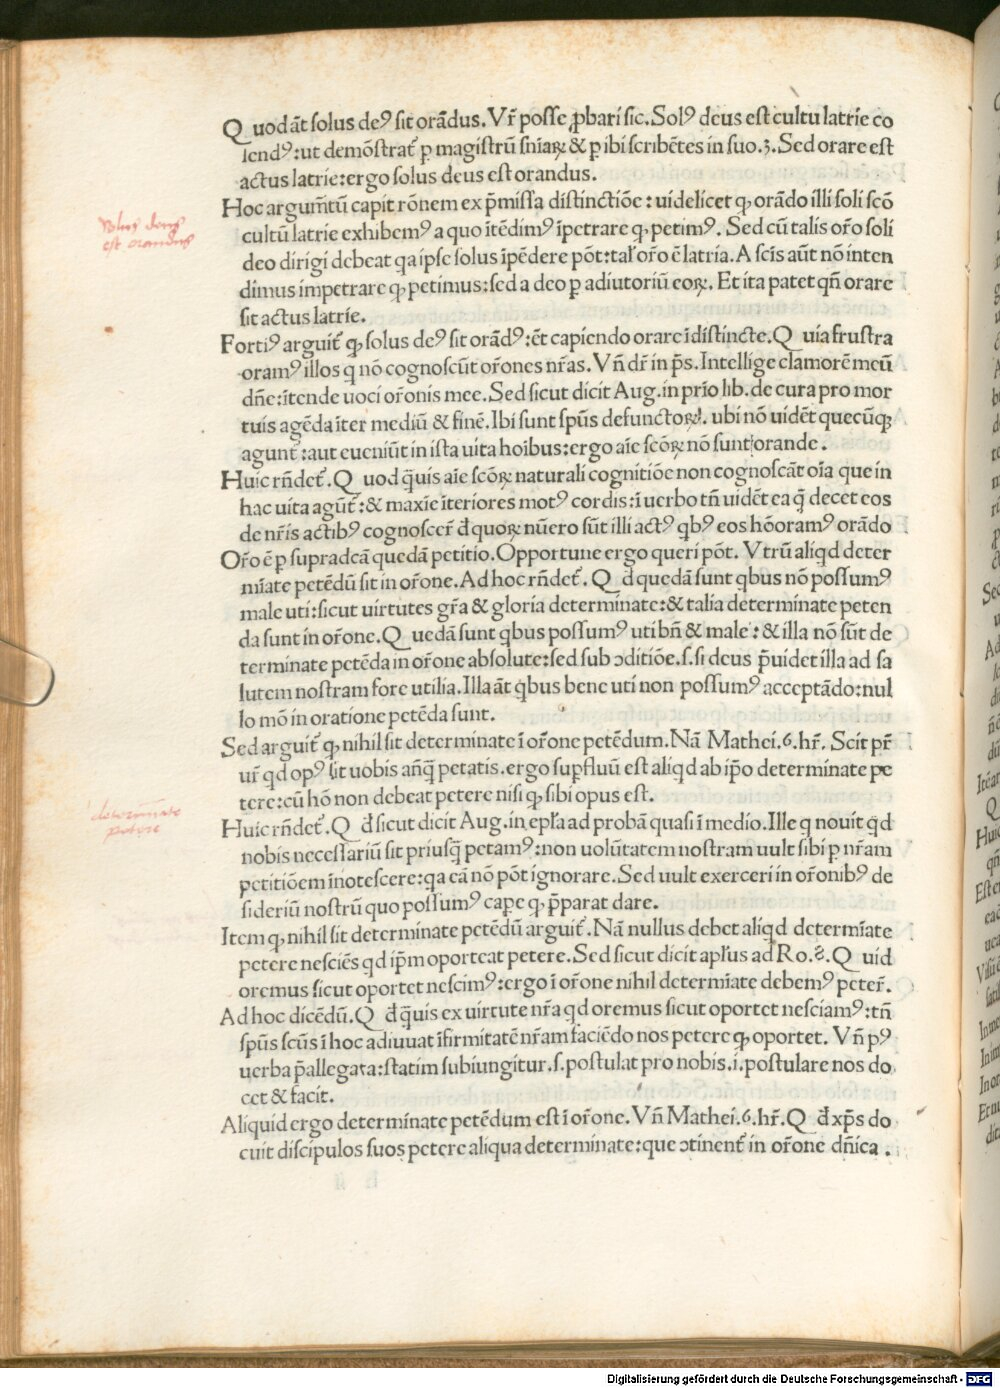 Q uod āt ſolus deꝰ ſit orādus. Vr̄ poſſe ꝓbari ſic. Solꝰ deus eſt cultu latrie co
lendꝰ: ut demōſtrat᷑ ꝑ magiſtrū ſniaꝝ & ꝑ ibi ſcribētes in ſuo .3. Sed orare eſt
actus latrie: ergo ſolus deus eſt orandus.
Hoc argumt̄ū capit rōnem ex p̄miſſa diſtinctiōe: uidelicet ꝙ orādo illi ſoli ſcō
cultū latrie exhibemꝰ a quo itēdimꝰ īpetrare ꝙ petimꝰ. Sed cū talis or̄o ſoli
ſolus deus
est orandus
deo dirigi debeat qa ipſe ſolus īpēdere pōt: tal̄ or̄o ē latria. A ſcīs aūt nō inten
dimus impetrare ꝙ petimus: ſed a deo ꝑ adiutoriū eoꝝ. Et ita patet qn̄ orare
ſit actus latrie.
Fortiꝰ arguit᷑ ꝙ ſolus deꝰ ſit orādꝰ: ēt capiendo orare īdiſtincte. Q uia fruſtra
oramꝰ illos q nō cognoſcūt or̄ones nr̄as. Vn̄ dr̄ in p̄s. Intellige clamorē meū
dn̄e: itende uoci or̄onis mee. Sed ſicut dicit Aug. in prīo lib. de cura pro mor
tuis agēda iter mediū & finē. Ibi ſunt ſpūs defunctoꝝ. ubi nō uidēt quecūqꝫ
agunt᷑: aut eueniūt in iſta uita hoibus: ergo aīe ſcōꝝ nō ſunt orande.
Huic rn̄det᷑. Q uod q̄uis aīe ſcōꝝ naturali cognitiōe non cognoſcāt oīa que in
hac uita agūt᷑: & maxīe īteriores motꝰ cordis: ī uerbo tn̄ uidēt ea q̄ decet eos
de nr̄is actibꝰ cognoſcer̄ đ quoꝝ nūero ſūt illi actꝰ qbꝰ eos hōoramꝰ orādo
Or̄o ē ꝑ ſupradcā quedā petitio. Opportune ergo queri pōt. Vtrū aliqd deter
mīate petēdū ſit in or̄one. Ad hoc rn̄det᷑. Q đ quedā ſunt qbus nō poſſumꝰ
male uti: ſicut uirtutes gr̄a & gloria determinate: & talia determinate peten
da ſunt in or̄one. Q uedā ſunt qbus poſſumꝰ uti bn̄ & male: & illa nō ſūt de
terminate petēda in or̄one abſolute: ſed ſub ↄditiōe .ſ. ſi deus p̄uidet illa ad ſa
lutem noſtram fore utilia. Illa āt qbus bene uti non poſſumꝰ acceptādo: nul
lo mō in oratione petēda ſunt.
Sed arguit᷑ ꝙ nihil ſit determinate ī or̄one petēdum. Nā Mathei .6. hr̄. Scit pr̄
ur̄ qd opꝰ ſit uobis an̄q̄ petatis. ergo ſuꝑfluū eſt aliqd ab ip̄o determinate pe
tere: cū hō non debeat petere niſi ꝙ ſibi opus eſt.
determinate
petere
Huic rn̄det᷑. Q đ ſicut dicit Aug. in epl̄a ad probā quaſi ī medio. Ille q nouit qđ
nobis neceſſariū ſit priuſq̄ petamꝰ: non uolūtatem noſtram uult ſibi ꝑ nr̄am
petitiōem inoteſcere: qa eā nō pōt ignorare. Sed uult exerceri in or̄onibꝰ de
ſideriū noſtrū quo poſſumꝰ caꝑe ꝙ p̄parat dare.
Item ꝙ nihil ſit determinate petēdū arguit᷑. Nā nullus debet aliqd determīate
petere neſciēs qd ip̄m oporteat petere. Sed ſicut dicit apl̄us ad Ro.8. Q uid
oremus ſicut oportet neſcimꝰ: ergo ī or̄one nihil determīate debemꝰ peter̄.
Ad hoc dicēdū. Q đ q̄uis ex uirtute nr̄a qd oremus ſicut oportet neſciamꝰ: tn̄
ſpūs ſcūs ī hoc adiuuat īfirmitatē nr̄am faciēdo nos petere ꝙ oportet. Vn̄ pꝰ
uerba p̄allegata: ſtatim ſubiungitur .ſ. poſtulat pro nobis .i. poſtulare nos do
cet & facit.
Aliquid ergo determinate petēdum eſt ī or̄one. Vn̄ Mathei .6. hr̄. Q đ xp̄s do
cuit diſcipulos ſuos petere aliqua determinate: que ↄtinent᷑ in or̄one dn̄ica.
Digitalisierung gefördert durch die Deutsche Forschungsgemeinschaft - DFG